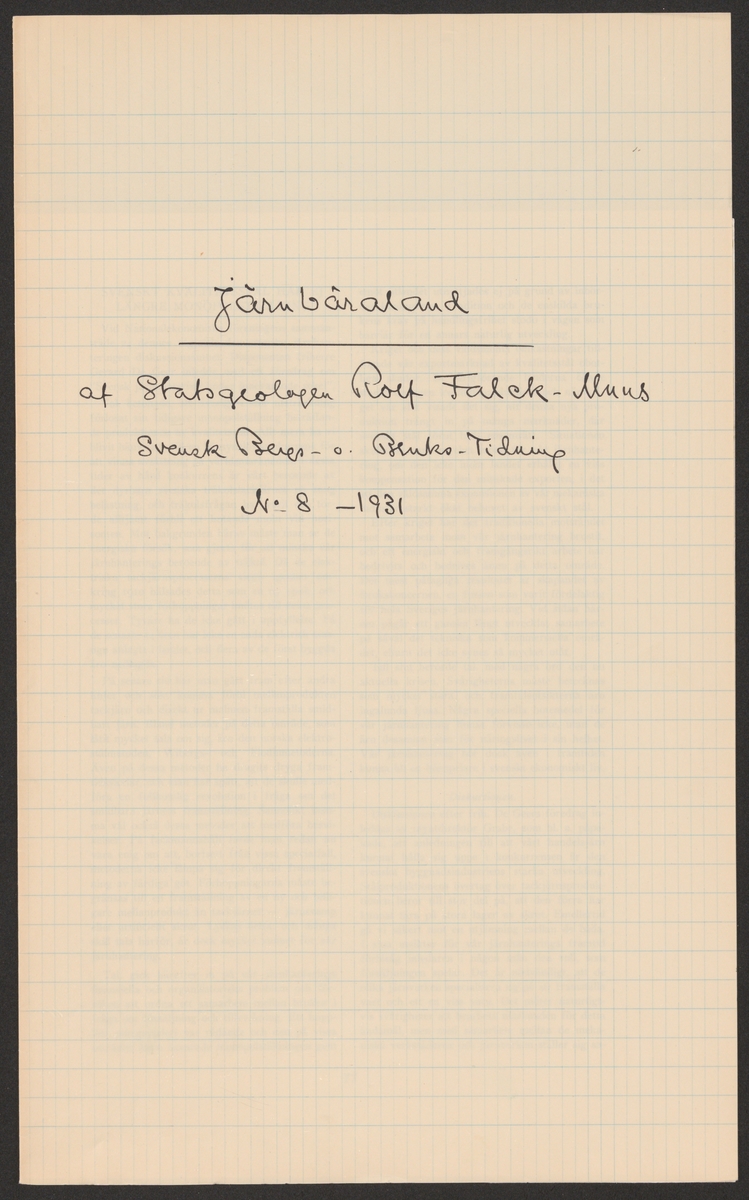 Järnbäraland
af Statsgeologen Rolf Falck-Muus
Svensk Bergs- o. Bruks-Tidning
No 8 – 1931